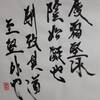 履霜堅冰
陰始凝也
馴致其道
至堅冰也